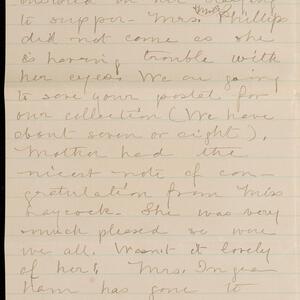 to supper - Mrs. Phillips
did not come as she
is having trouble with
her eyes. We are going
to save your postal for
our collection (We have
about seven or eight).
Mother had the
nicest note of con-
gratulation from Miss
Haycock. She was very
much pleased we were
we all. Wasn't it lovely
of her? Mrs. Ingra
ham has gone to